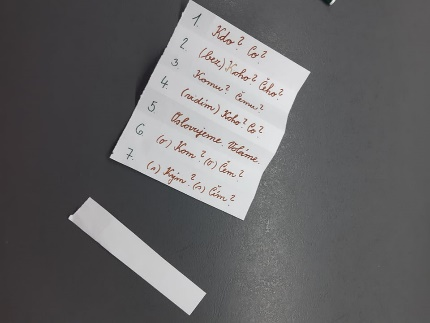 1. Kdo? Co?
2. (bez) Koho? Čeho?
3. Komu? Čemu?
4. (vidím) Koho? Co?
5. Oslovujeme. Voláme.
6 (o) Kom? (o) Čem?
7. (s) Kým? (s) Čím?